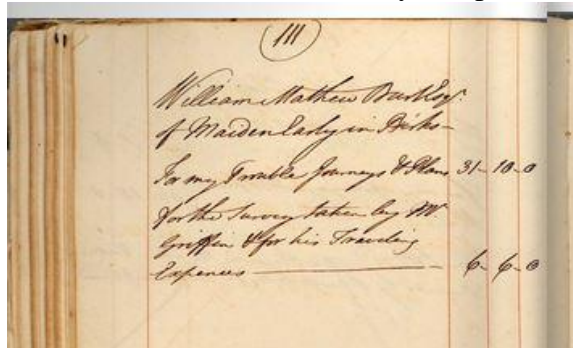 111
William Mathew Burt Esqr.
of Maiden Early in Berks-
For my Trouble Journeys & Plans 31- 10- 0
for the Survey taken by Mr.
Griffin & for his Traveling
Expences - 6- 6- 0